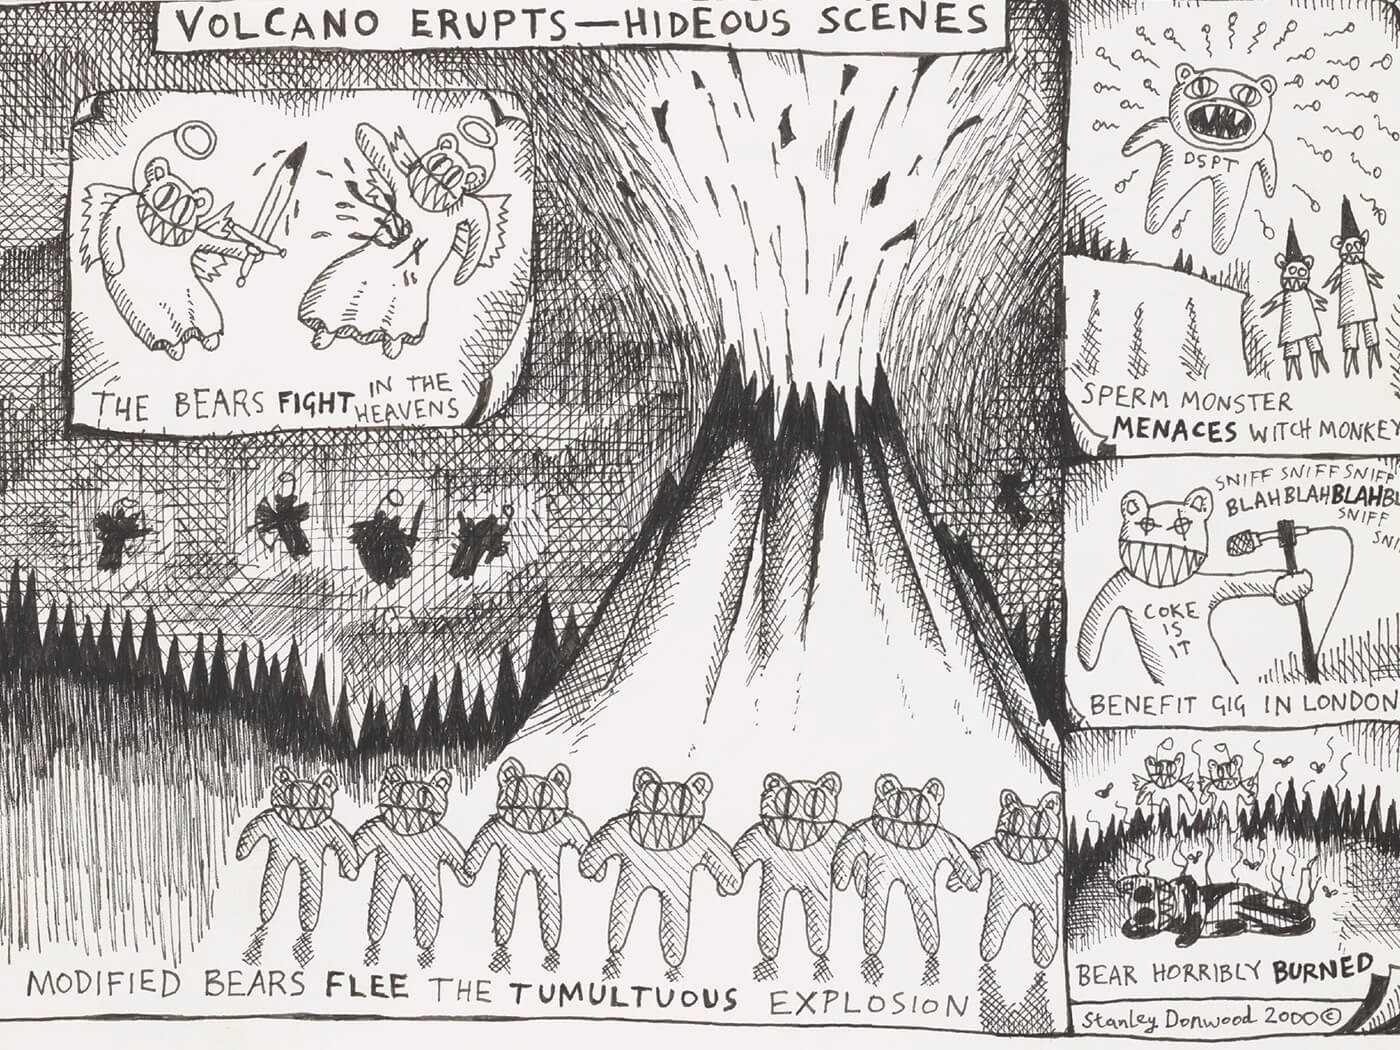 VOLCANO ERUPTS—HIDEOUS SCENES
THE BEARS FIGHT IN THE
HEAVENS
MODIFIED BEARS FLEE THE TUMULTUOUS EXPLOSION
DSPT
SPERM MONSTER
MENACES WITCH MONKEY
SNIFF SNIFF SNIFF
BLAH BLAH BLAH BL
SNIFF
SNI
COKE
IS
IT
BENEFIT GIG IN LONDON
BEAR HORRIBLY BURNED
Stanley Donwood 2000©